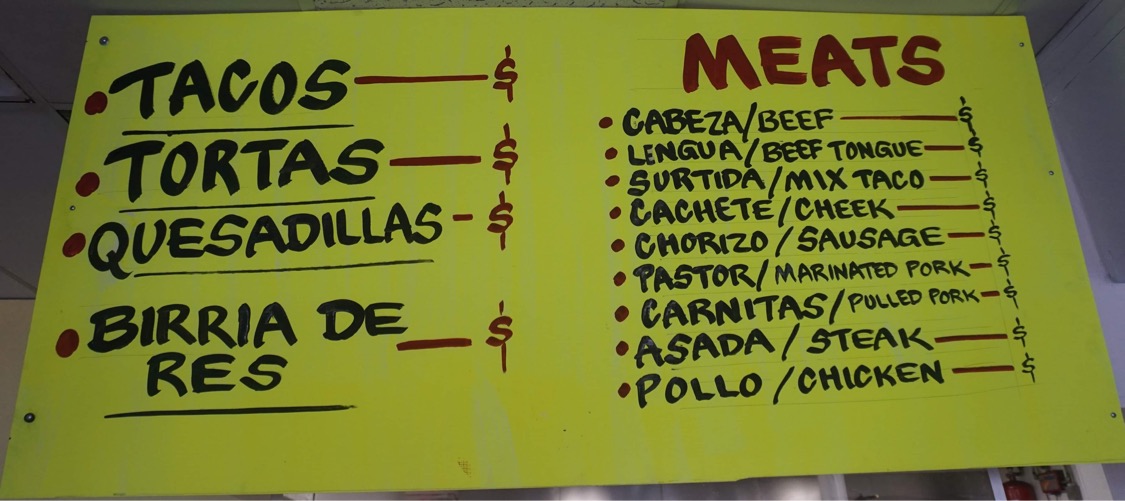 • TACOS — $
• TORTAS — $
• QUESADILLAS - $
• BIRRIA DE
RES — $
MEATS
• CABEZA/BEEF — $
• LENGUA/BEEF TONGUE — $
• SURTIDA/MIX TACO — $
• CACHETE/CHEEK — $
• CHORIZO/SAUSAGE — $
• PASTOR/MARINATED PORK - $
• CARNITAS/PULLED PORK - $
• ASADA/STEAK — $
• POLLO/CHICKEN — $